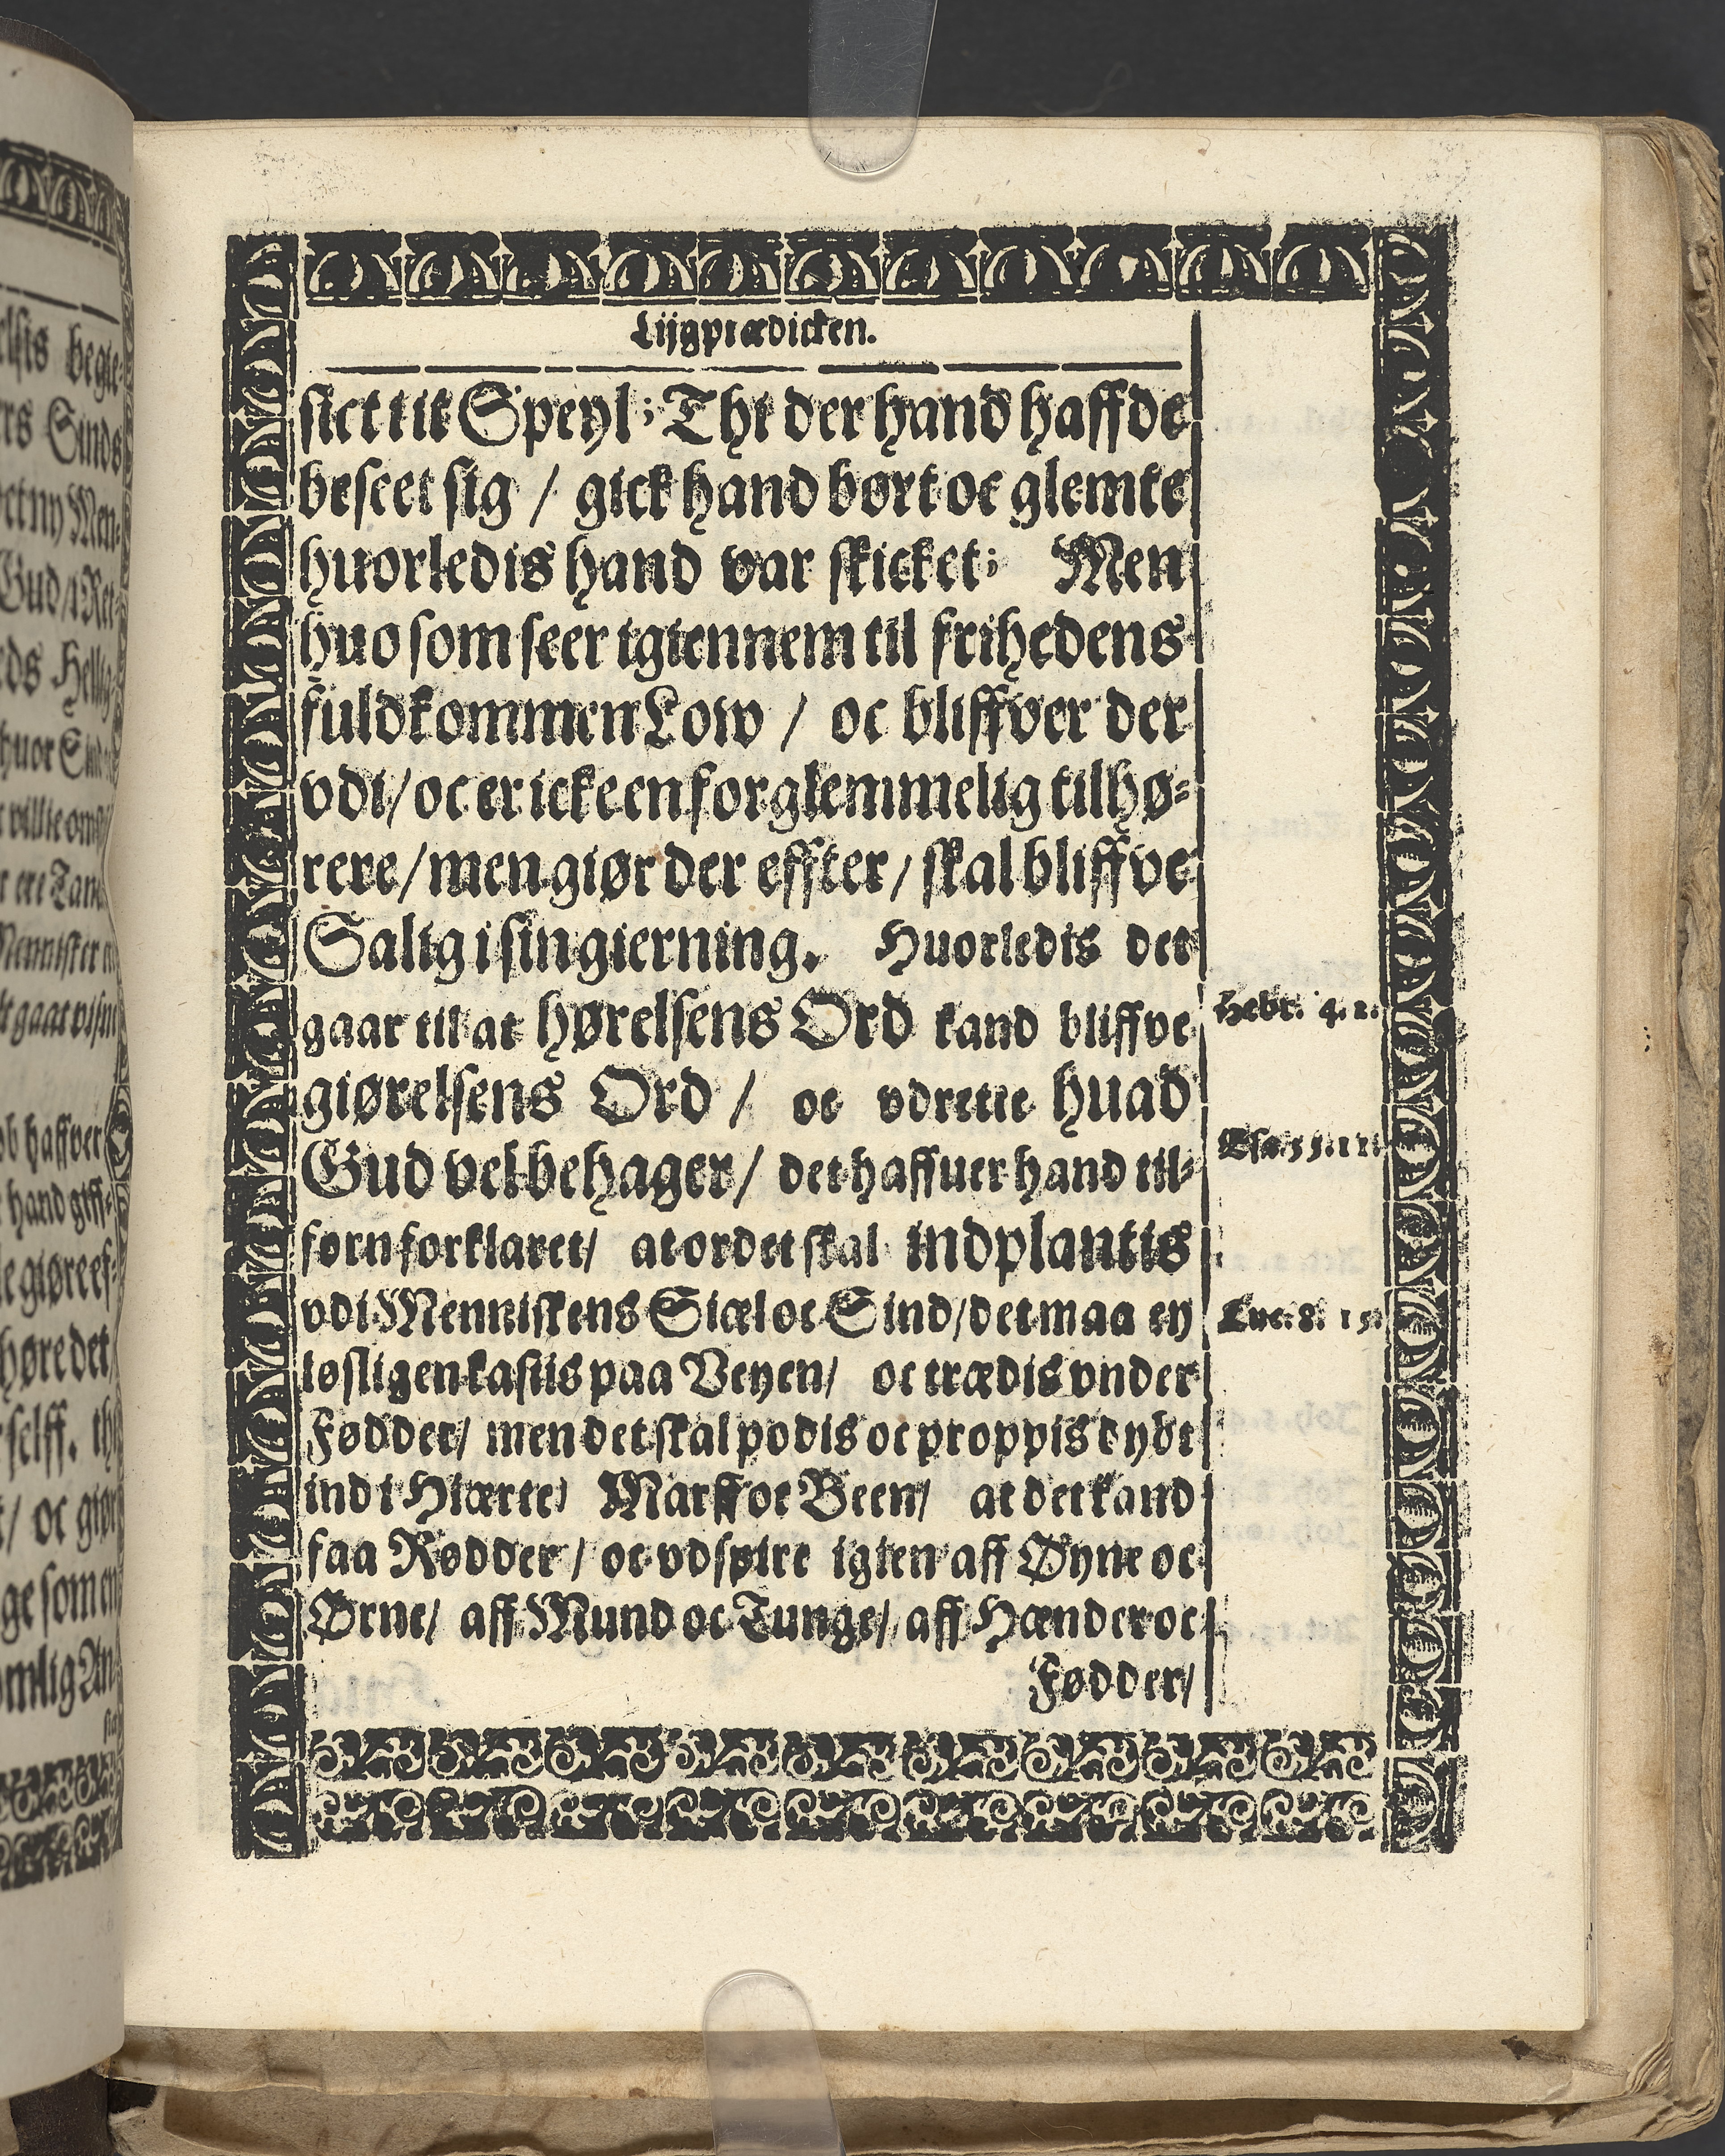 Lijgprædicken.
sict it Speyl; Thi der hand haffde
beseet sig / gick hand bort oc glemte
huorledis hand var skicket; Men
huo som seer igiennem til frihedens
fuldkommen Low / oc bliffver der
vdi / oc er icke en forglemmelig tilhø-
rere / men giør der effter / skal bliffve
Salig i sin gierning. Huorledis det
gaar til at hørelsens Ord kand bliffve
giørelsens Ord / oc vdrette huad
Gud vel behager / det haffuer hand til-
forn forklaret / at ordet skal indplantis
vdi Menniskens Siæl oc Sind / det maa ey
løsligen kastis paa Veyen / oc trædis vnder
Fødder / men det skal podis oc proppis dybt
ind i Hiærte / Marff oc Been / at det kand
faa Rødder / oc vdspire igien aff Øyne oc
Ørne / aff Mund oc Tunge / aff Hænder oc
Fødder /
Hebr. 4. 2.
Esa. 55. 11.
Luc. 8. 15.
ge som en
høre det /
/ oc giør
Sinds